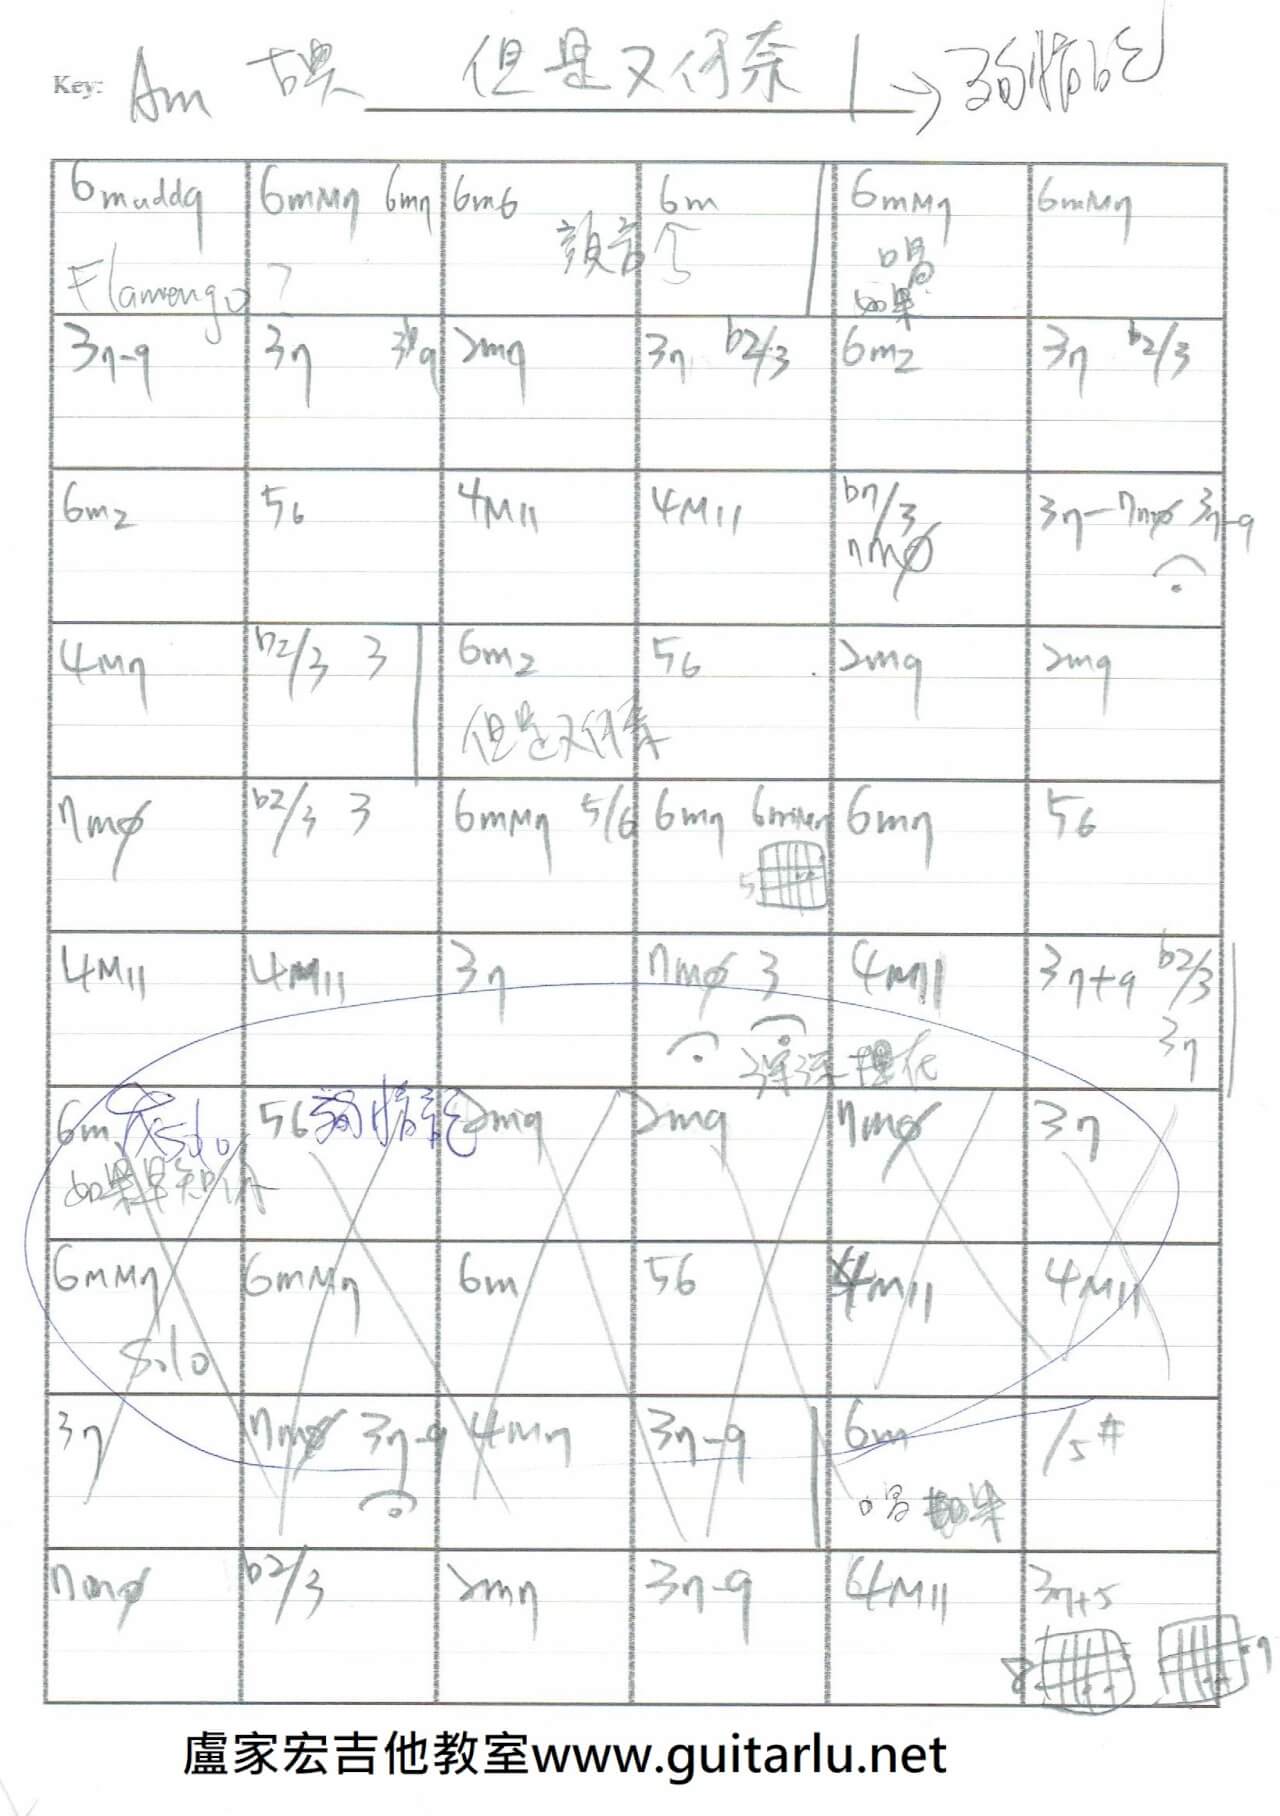 Key: Am 古典 但是又何奈 1 → 獨情歌
6madd9 6mM7 6m7 6m6 6m 6mM7 6mM7
Flamengo ? 顫音 唱
如果
37-9 37 3b9 2m9 37 b2/3 6m2 37 b2/3
6m2 56 4M11 4M11 b7/3 37-7mø 37-9
7mø
4M7 b2/3 3 6m2 56 2m9 2m9
但是又何奈
7mø b2/3 3 6mM7 5/6 6m7 6mM7 6m7 56
5
4M11 4M11 37 7mø 3 4M11 37+9 b2/3
深深埋在 37
6m Solo 56 2m9 2m9 7mø 37
如果早知
6mM7 6mM7 6m 56 4M11 4M11
Solo
37 7mø 37-9 4M7 37-9 6m /5#
唱 如果
7mø b2/3 2m7 37-9 4M11 37+5
8 7
盧家宏吉他教室www.guitarlu.net